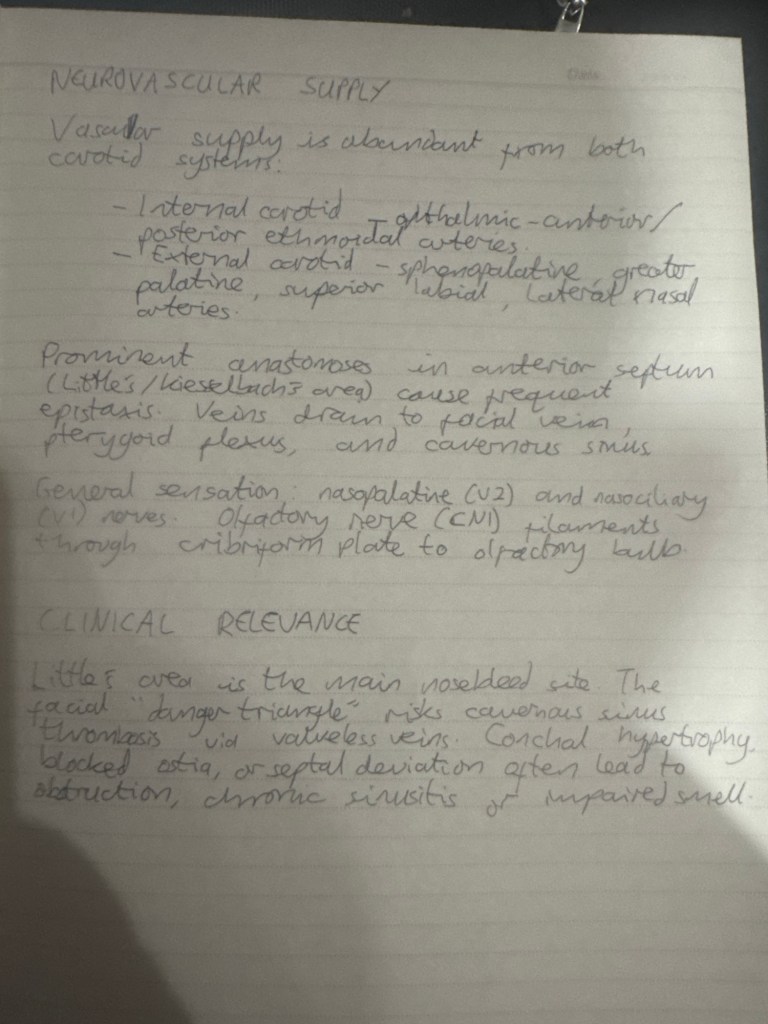 NEUROVASCULAR SUPPLY
Vascular supply is abundant from both
carotid systems:
- Internal carotid - opthalmic - anterior/
posterior ethmoidal arteries.
- External carotid - sphenopalatine, greater
palatine, superior labial, lateral nasal
arteries.
Prominent anastomoses in anterior septum
(Little's/Kiesselbach's area) cause frequent
epistaxis. Veins drain to facial vein,
pterygoid plexus, and cavernous sinus
General sensation: nasopalatine (V2) and nasociliary
(V1) nerves. Olfactory nerve (CN1) filaments
through cribriform plate to olfactory bulb.
CLINICAL RELEVANCE
Little's area is the main nosebleed site. The
facial "danger triangle" risks cavernous sinus
thrombosis via valveless veins. Conchal hypertrophy,
blocked ostia, or septal deviation often lead to
obstruction, chronic sinusitis or impaired smell.